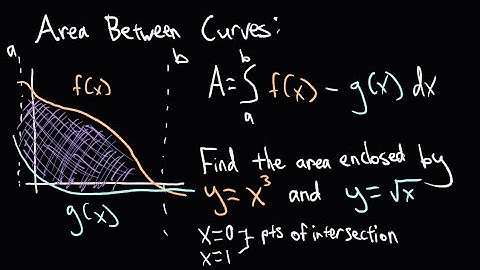 Area Between Curves:
a
b
f(x)
g(x)
A = ∫_a^b f(x) - g(x) dx
Find the area enclosed by
y = x³ and y = √x
x=0 } pts of intersection
x=1